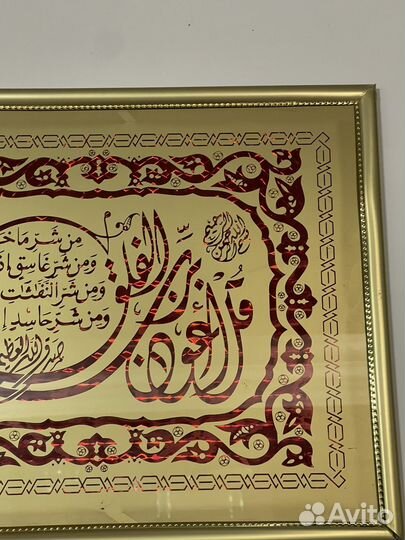 بسم الله الرحمن الرحيم
قُلْ أَعُوذُ بِرَبِّ الفَلَقِ
مِن شَرِّ مَا خَ
وَمِن شَرِّ غَاسِقٍ إِذَ
وَمِن شَرِّ النَّفَّٰثَٰتِ
وَمِن شَرِّ حَاسِدٍ إِ
صدق الله العظيم
Avito